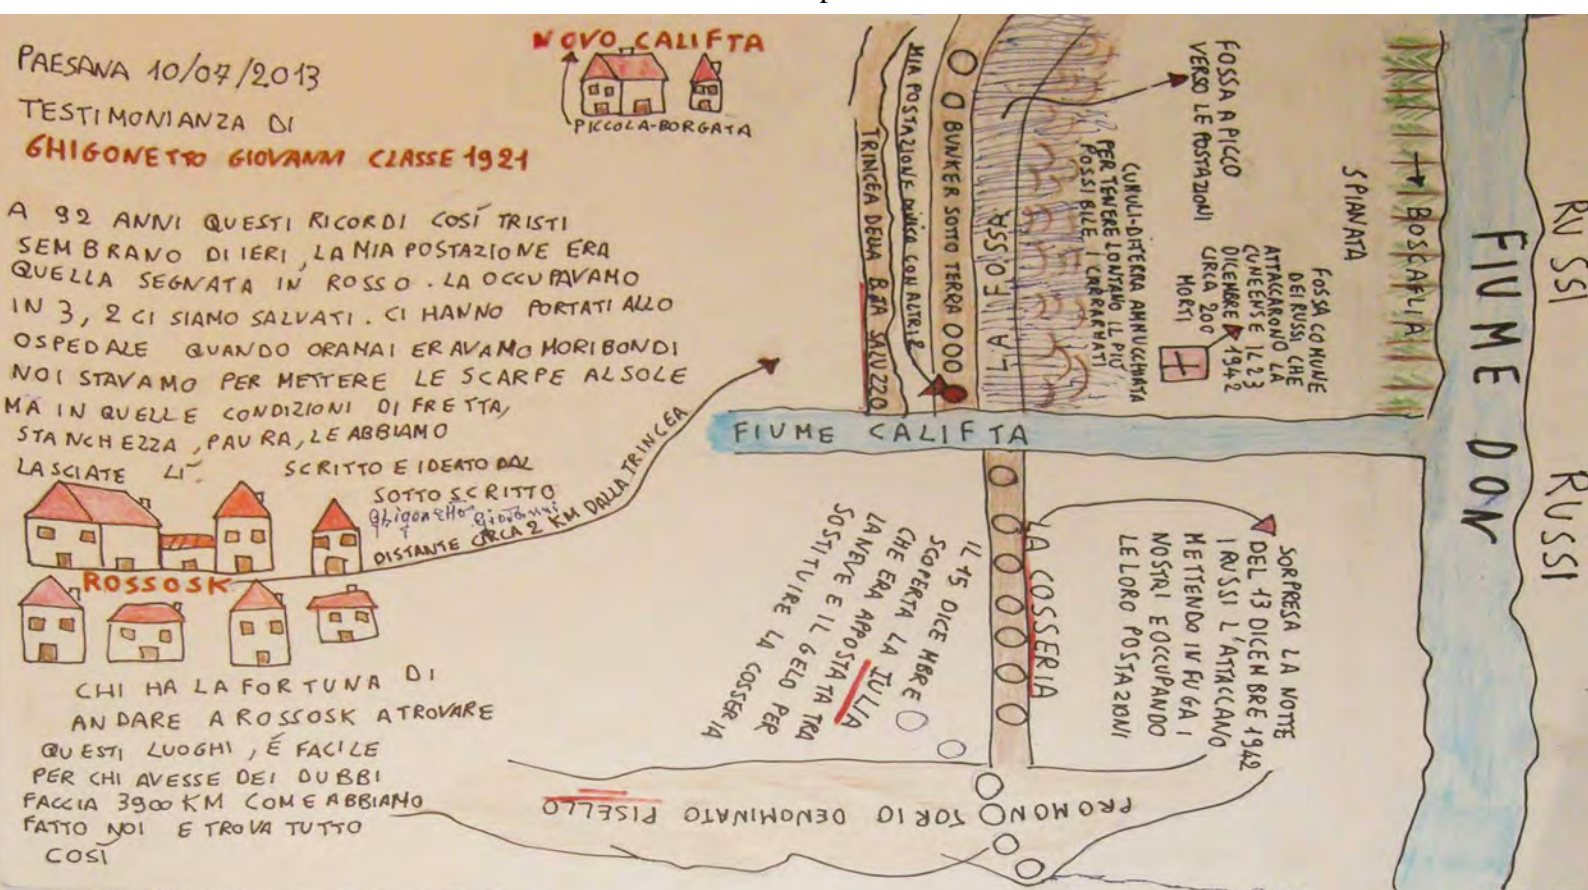 PAESANA 10/07/2013
TESTIMONIANZA DI
GHIGONETTO GIOVANNI CLASSE 1921
A 92 ANNI QUESTI RICORDI COSÍ TRISTI
SEMBRANO DI IERI, LA MIA POSTAZIONE ERA
QUELLA SEGNATA IN ROSSO. LA OCCUPAVAMO
IN 3, 2 CI SIAMO SALVATI. CI HANNO PORTATI ALLO
OSPEDALE QUANDO ORAMAI ERAVAMO MORIBONDI
NOI STAVAMO PER METTERE LE SCARPE AL SOLE
MA IN QUELLE CONDIZIONI DI FRETTA,
STANCHEZZA, PAURA, LE ABBIAMO
LASCIATE LÌ
SCRITTO E IDEATO DAL
SOTTOSCRITTO
Ghigonetto Giovanni
DISTANTE CIRCA 2 KM DALLA TRINCEA
ROSSOSK
CHI HA LA FORTUNA DI
ANDARE A ROSSOSK A TROVARE
QUESTI LUOGHI, É FACILE
PER CHI AVESSE DEI DUBBI
FACCIA 3900 KM COME ABBIAMO
FATTO NOI E TROVA TUTTO
COSÌ
NOVO CALIFTA
PICCOLA-BORGATA
TRINCEA DELLA BTA SALUZZO
MIA POSTAZIONE DIVISA CON ALTRI 2
BUNKER SOTTO TERRA
LA FOSSA
CUMULI-DITERRA AMMUCCHIATA
PER TENERE LONTANO IL PIÙ
POSSIBILE I CARRARMATI
FOSSA A PICCO
VERSO LE POSTAZIONI
FOSSA COMUNE
DEI RUSSI CHE
ATTACCARONO LA
CUNEENSE IL 23
DICEMBRE 1942
CIRCA 200
MORTI
SPIANATA
BOSCAFLIA
FIUME DON
RUSSI
RUSSI
FIUME CALIFTA
LA COSSERIA
SORPRESA LA NOTTE
DEL 13 DICEMBRE 1942
I RUSSI L'ATTACCANO
METTENDO IN FUGA I
NOSTRI E OCCUPANDO
LE LORO POSTAZIONI
IL 15 DICEMBRE
SCOPERTA LA IULIA
CHE ERA APPOSTATA TRA
LA NEVE E IL GELO PER
SOSTITUIRE LA COSSERIA
PROMONTORIO DENOMINATO PISELLO